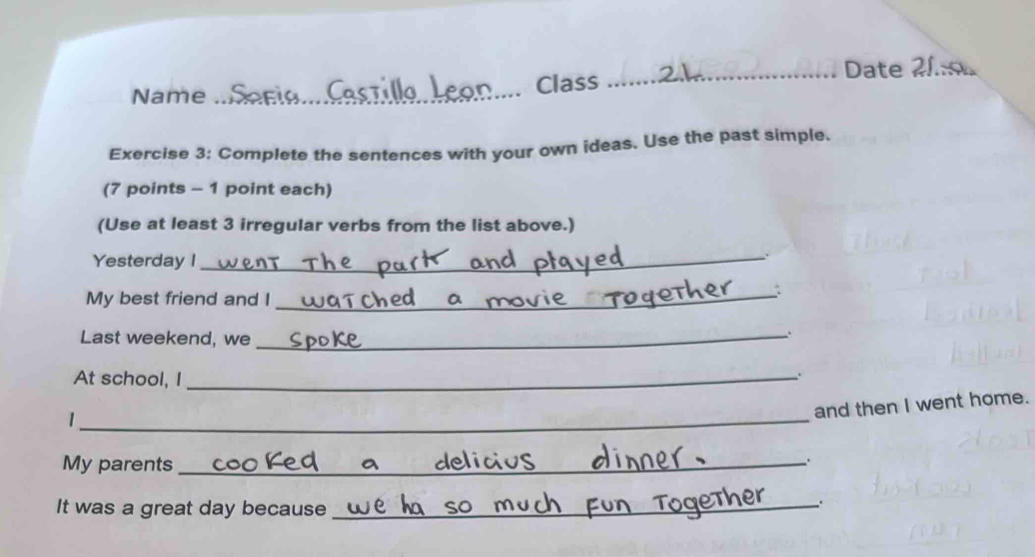 Name ...Sofia Castillo Leon... Class ......21............ Date 21...
Exercise 3: Complete the sentences with your own ideas. Use the past simple.
(7 points – 1 point each)
(Use at least 3 irregular verbs from the list above.)
Yesterday I went The park and played.
My best friend and I watched a movie Together.
Last weekend, we spoke.
At school, I ______.
I ______ and then I went home.
My parents cooked a delicius dinner..
It was a great day because we ha so much Fun Together.